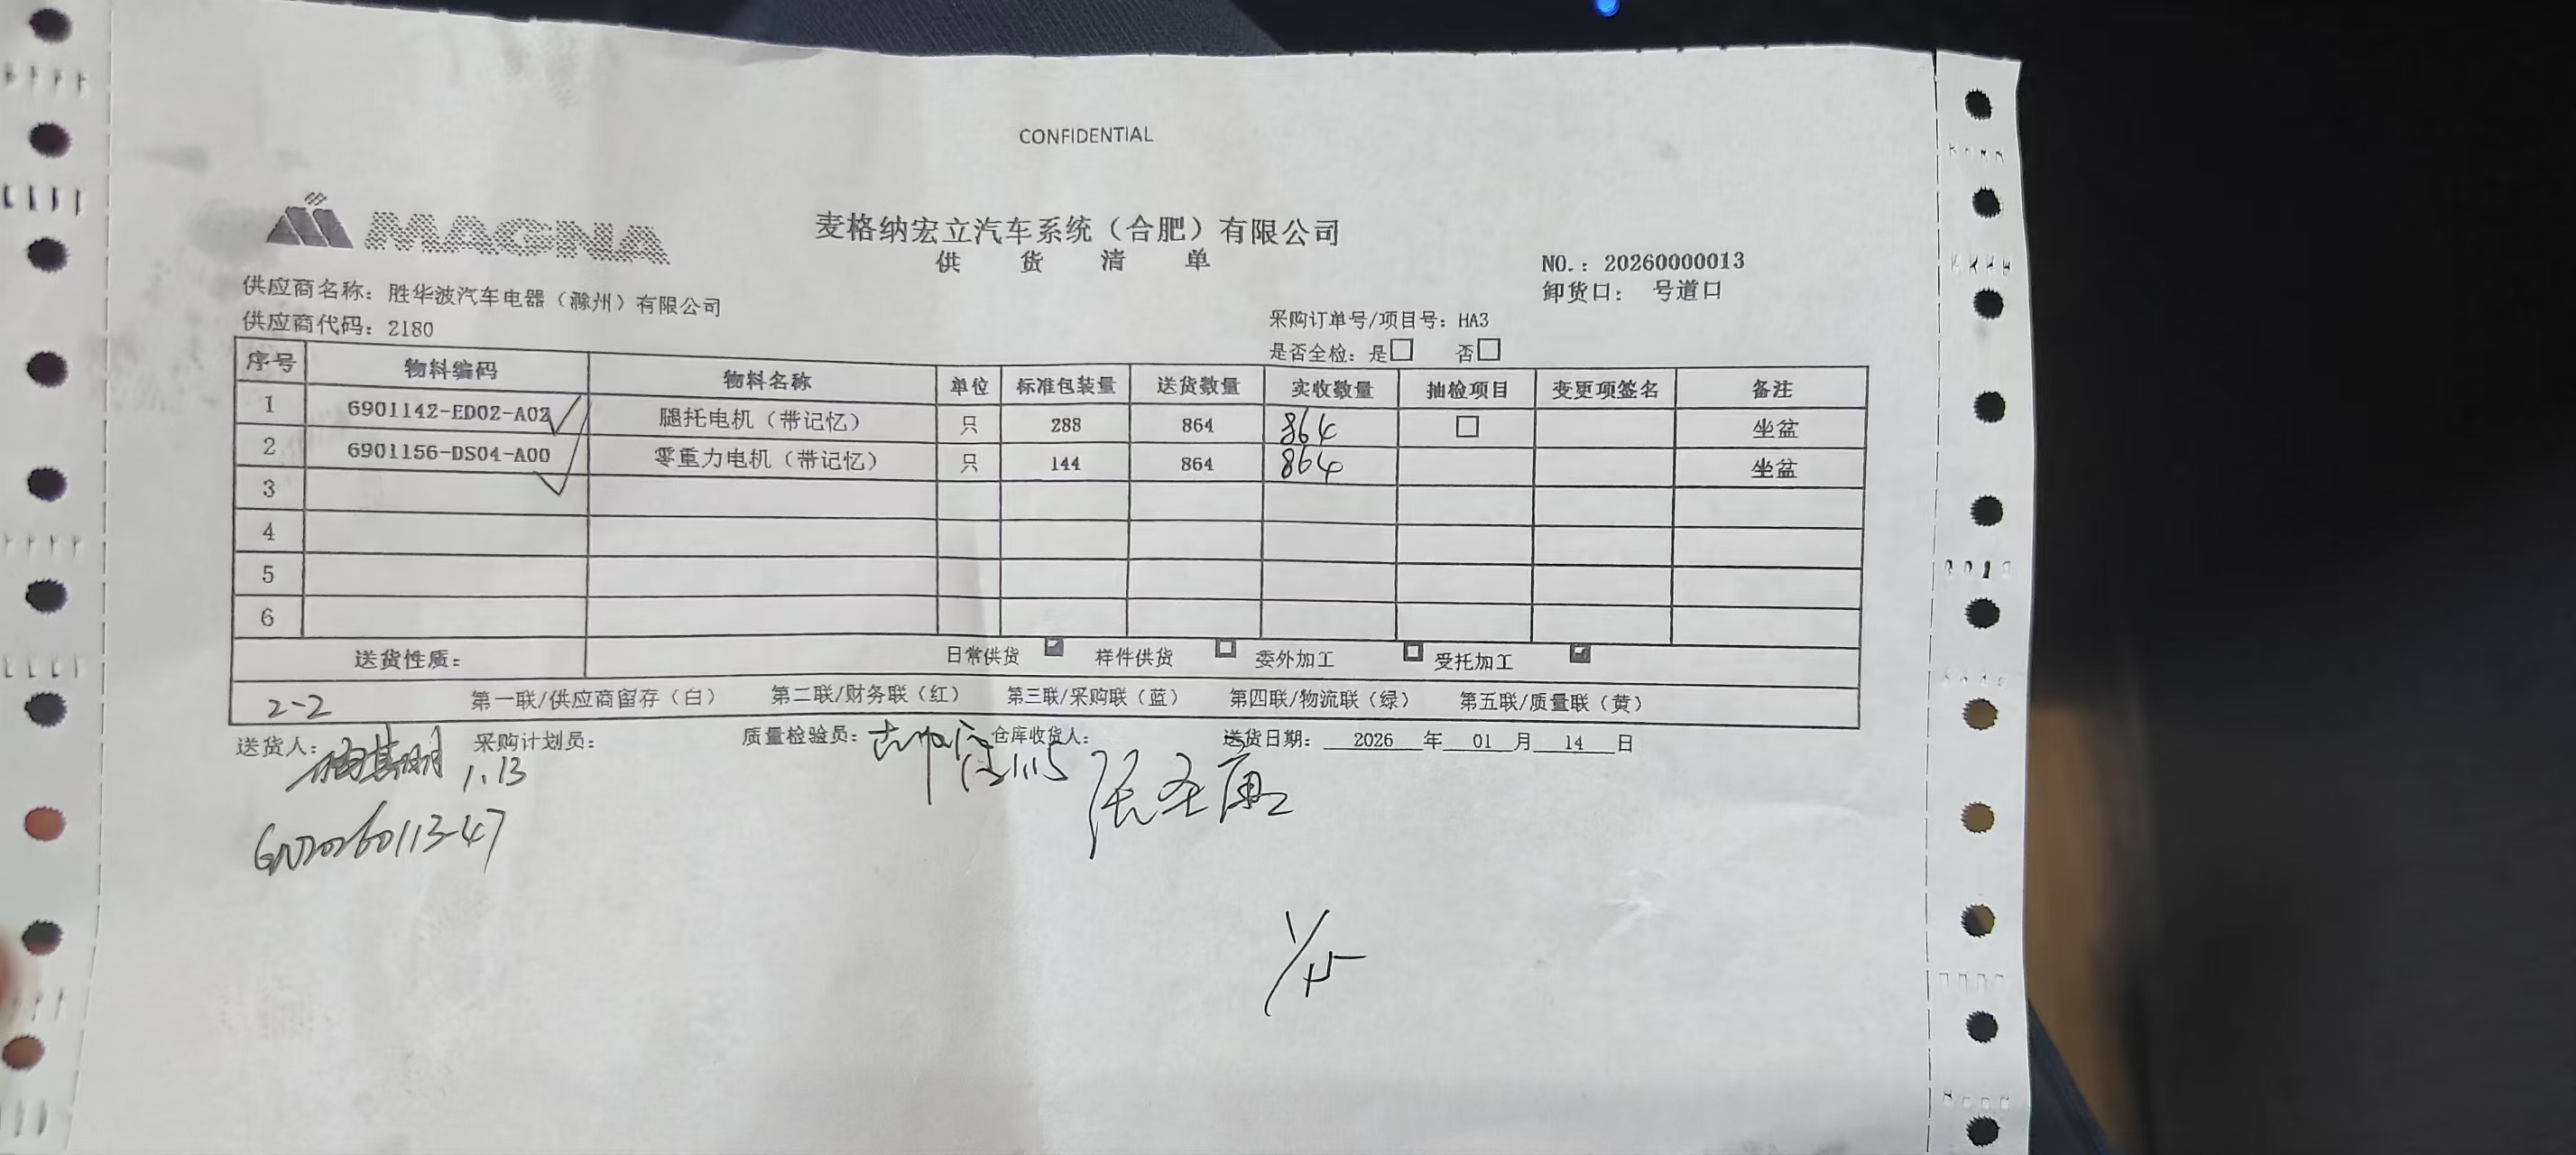 CONFIDENTIAL
MAGNA
麦格纳宏立汽车系统（合肥）有限公司
供 货 清 单
NO.: 20260000013
卸货口： 号道口
供应商名称：胜华波汽车电器（滁州）有限公司
供应商代码：2180
采购订单号/项目号：HA3
是否全检：是□ 否□
序号 物料编码 物料名称 单位 标准包装量 送货数量 实收数量 抽检项目 变更项签名 备注
1 6901142-ED02-A02 腿托电机（带记忆） 只 288 864 864 □ 坐盆
2 6901156-DS04-A00 零重力电机（带记忆） 只 144 864 864 坐盆
3
4
5
6
送货性质： 日常供货 样件供货 委外加工 受托加工
2-2 第一联/供应商留存（白） 第二联/财务联（红） 第三联/采购联（蓝） 第四联/物流联（绿） 第五联/质量联（黄）
送货人： 采购计划员： 质量检验员： 仓库收货人： 送货日期： 2026 年 01 月 14 日
1.13 1.15
GN20260113-47
1/15